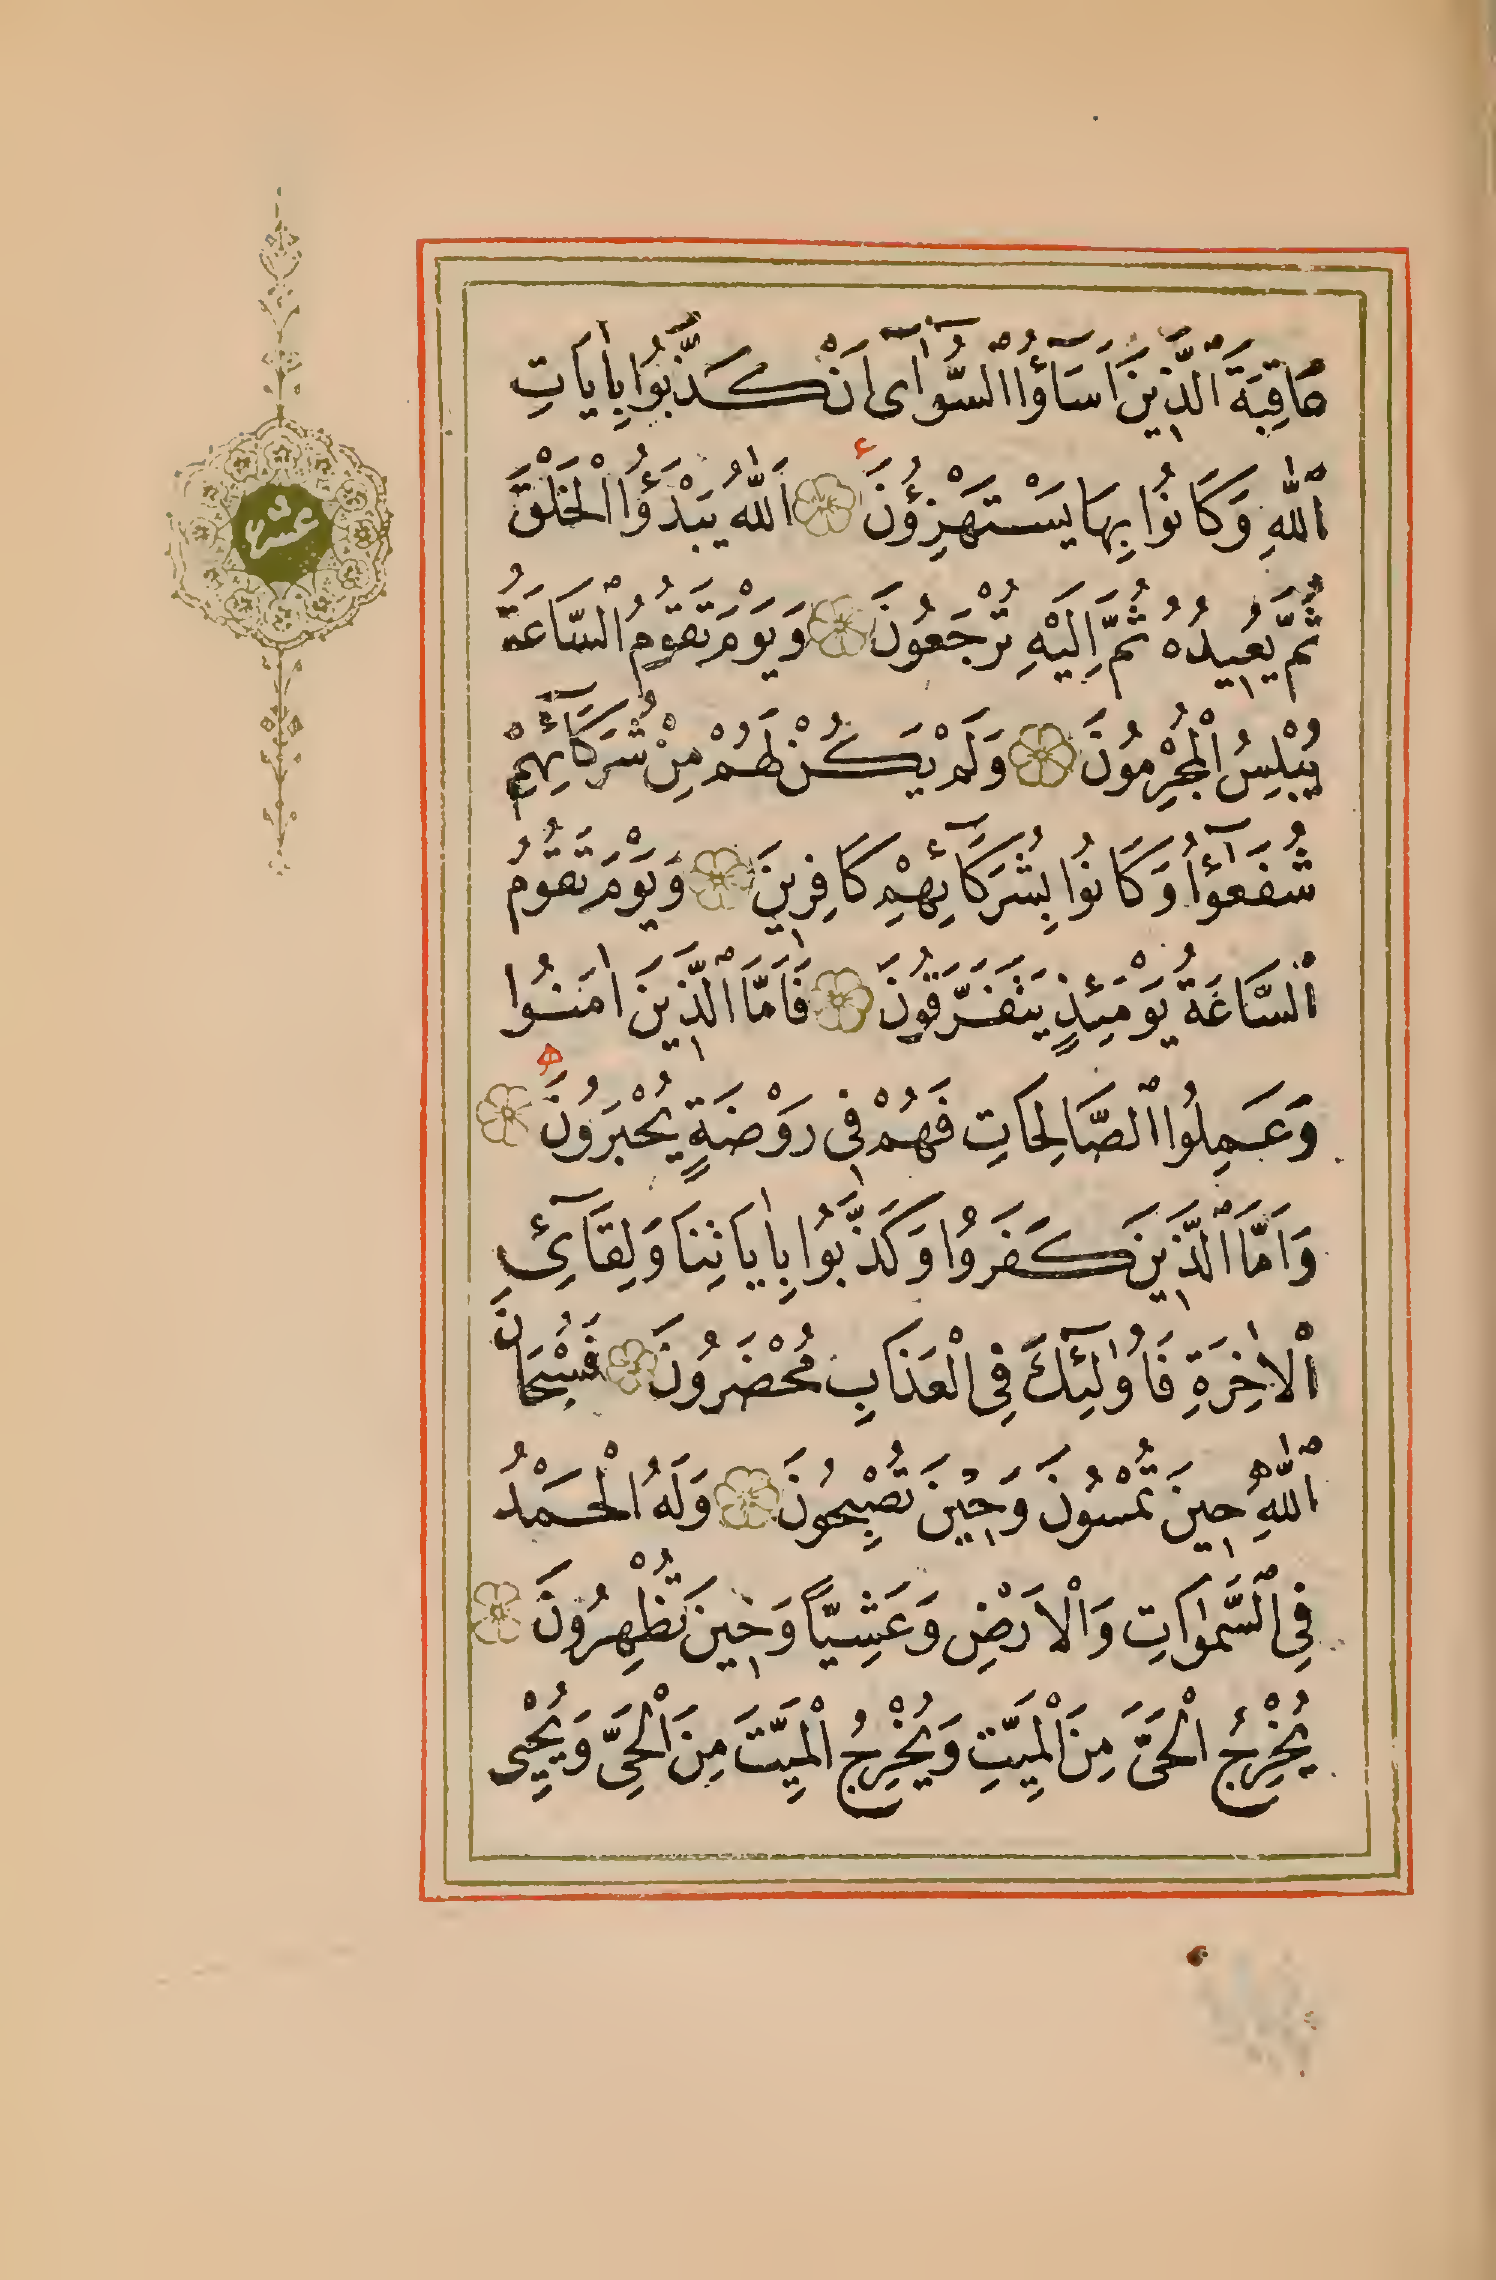 عَاقِبَةَ ٱلَّذِينَ اَسَآؤُا ٱلسُّوٓآٰى اَنْ كَذَّبُوا بِاٰيَاتِ
ٱللّٰهِ وَكَانُوا بِهَا يَسْتَهْزِؤُنَ ۝ اَللّٰهُ يَبْدَؤُا الْخَلْقَ
ثُمَّ يُعِيدُهُ ثُمَّ اِلَيْهِ تُرْجَعُونَ ۝ وَيَوْمَ تَقُومُ ٱلسَّاعَةُ
يُبْلِسُ الْمُجْرِمُونَ ۝ وَلَمْ يَكُنْ لَهُمْ مِنْ شُرَكَآئِهِمْ
شُفَعٰٓؤُا وَكَانُوا بِشُرَكَآئِهِمْ كَافِرِينَ ۝ وَيَوْمَ تَقُومُ
ٱلسَّاعَةُ يَوْمَئِذٍ يَتَفَرَّقُونَ ۝ فَاَمَّا ٱلَّذِينَ اٰمَنُوا
وَعَمِلُوا ٱلصَّالِحَاتِ فَهُمْ فِى رَوْضَةٍ يُحْبَرُونَ ۝
وَاَمَّا ٱلَّذِينَ كَفَرُوا وَكَذَّبُوا بِاٰيَاتِنَا وَلِقَآئِ
الْاٰخِرَةِ فَاُولٰٓئِكَ فِى الْعَذَابِ مُحْضَرُونَ ۝ فَسُبْحَانَ
ٱللّٰهِ حِينَ تُمْسُونَ وَحِينَ تُصْبِحُونَ ۝ وَلَهُ الْحَمْدُ
فِى ٱلسَّمٰوَاتِ وَالْاَرْضِ وَعَشِيًّا وَحِينَ تُظْهِرُونَ ۝
يُخْرِجُ الْحَىَّ مِنَ الْمَيِّتِ وَيُخْرِجُ الْمَيِّتَ مِنَ الْحَىِّ وَيُحْيِى
عشر